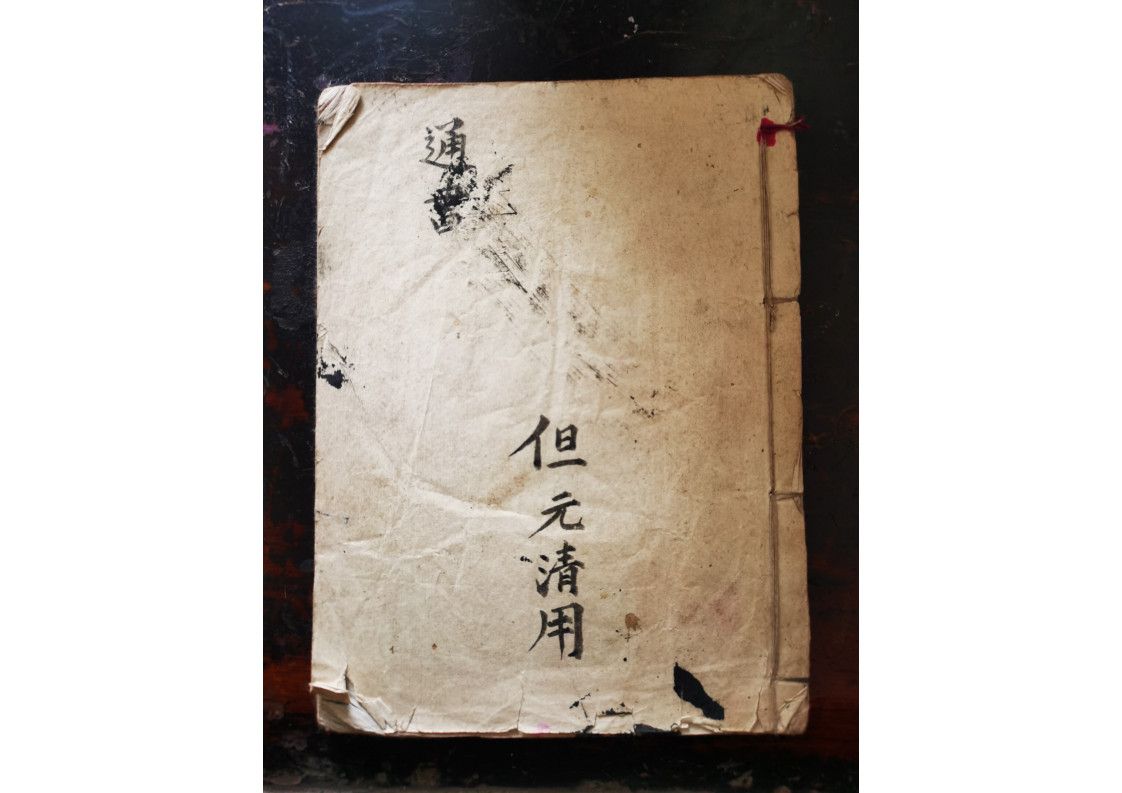 通書
但元清用